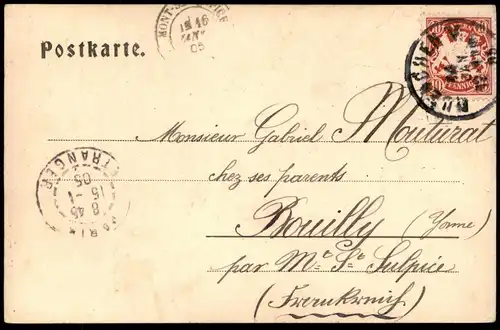 MONT-S
16
JANV
05
Postkarte.
MUENCHEN
PFENNIG
Monsieur Gabriel Mouturat
chez ses parents
ETRANGER
8 45
15 - 1
05
PARIS
Bouilly (Yonne)
par Mt St Sulpice
(Frankreich)